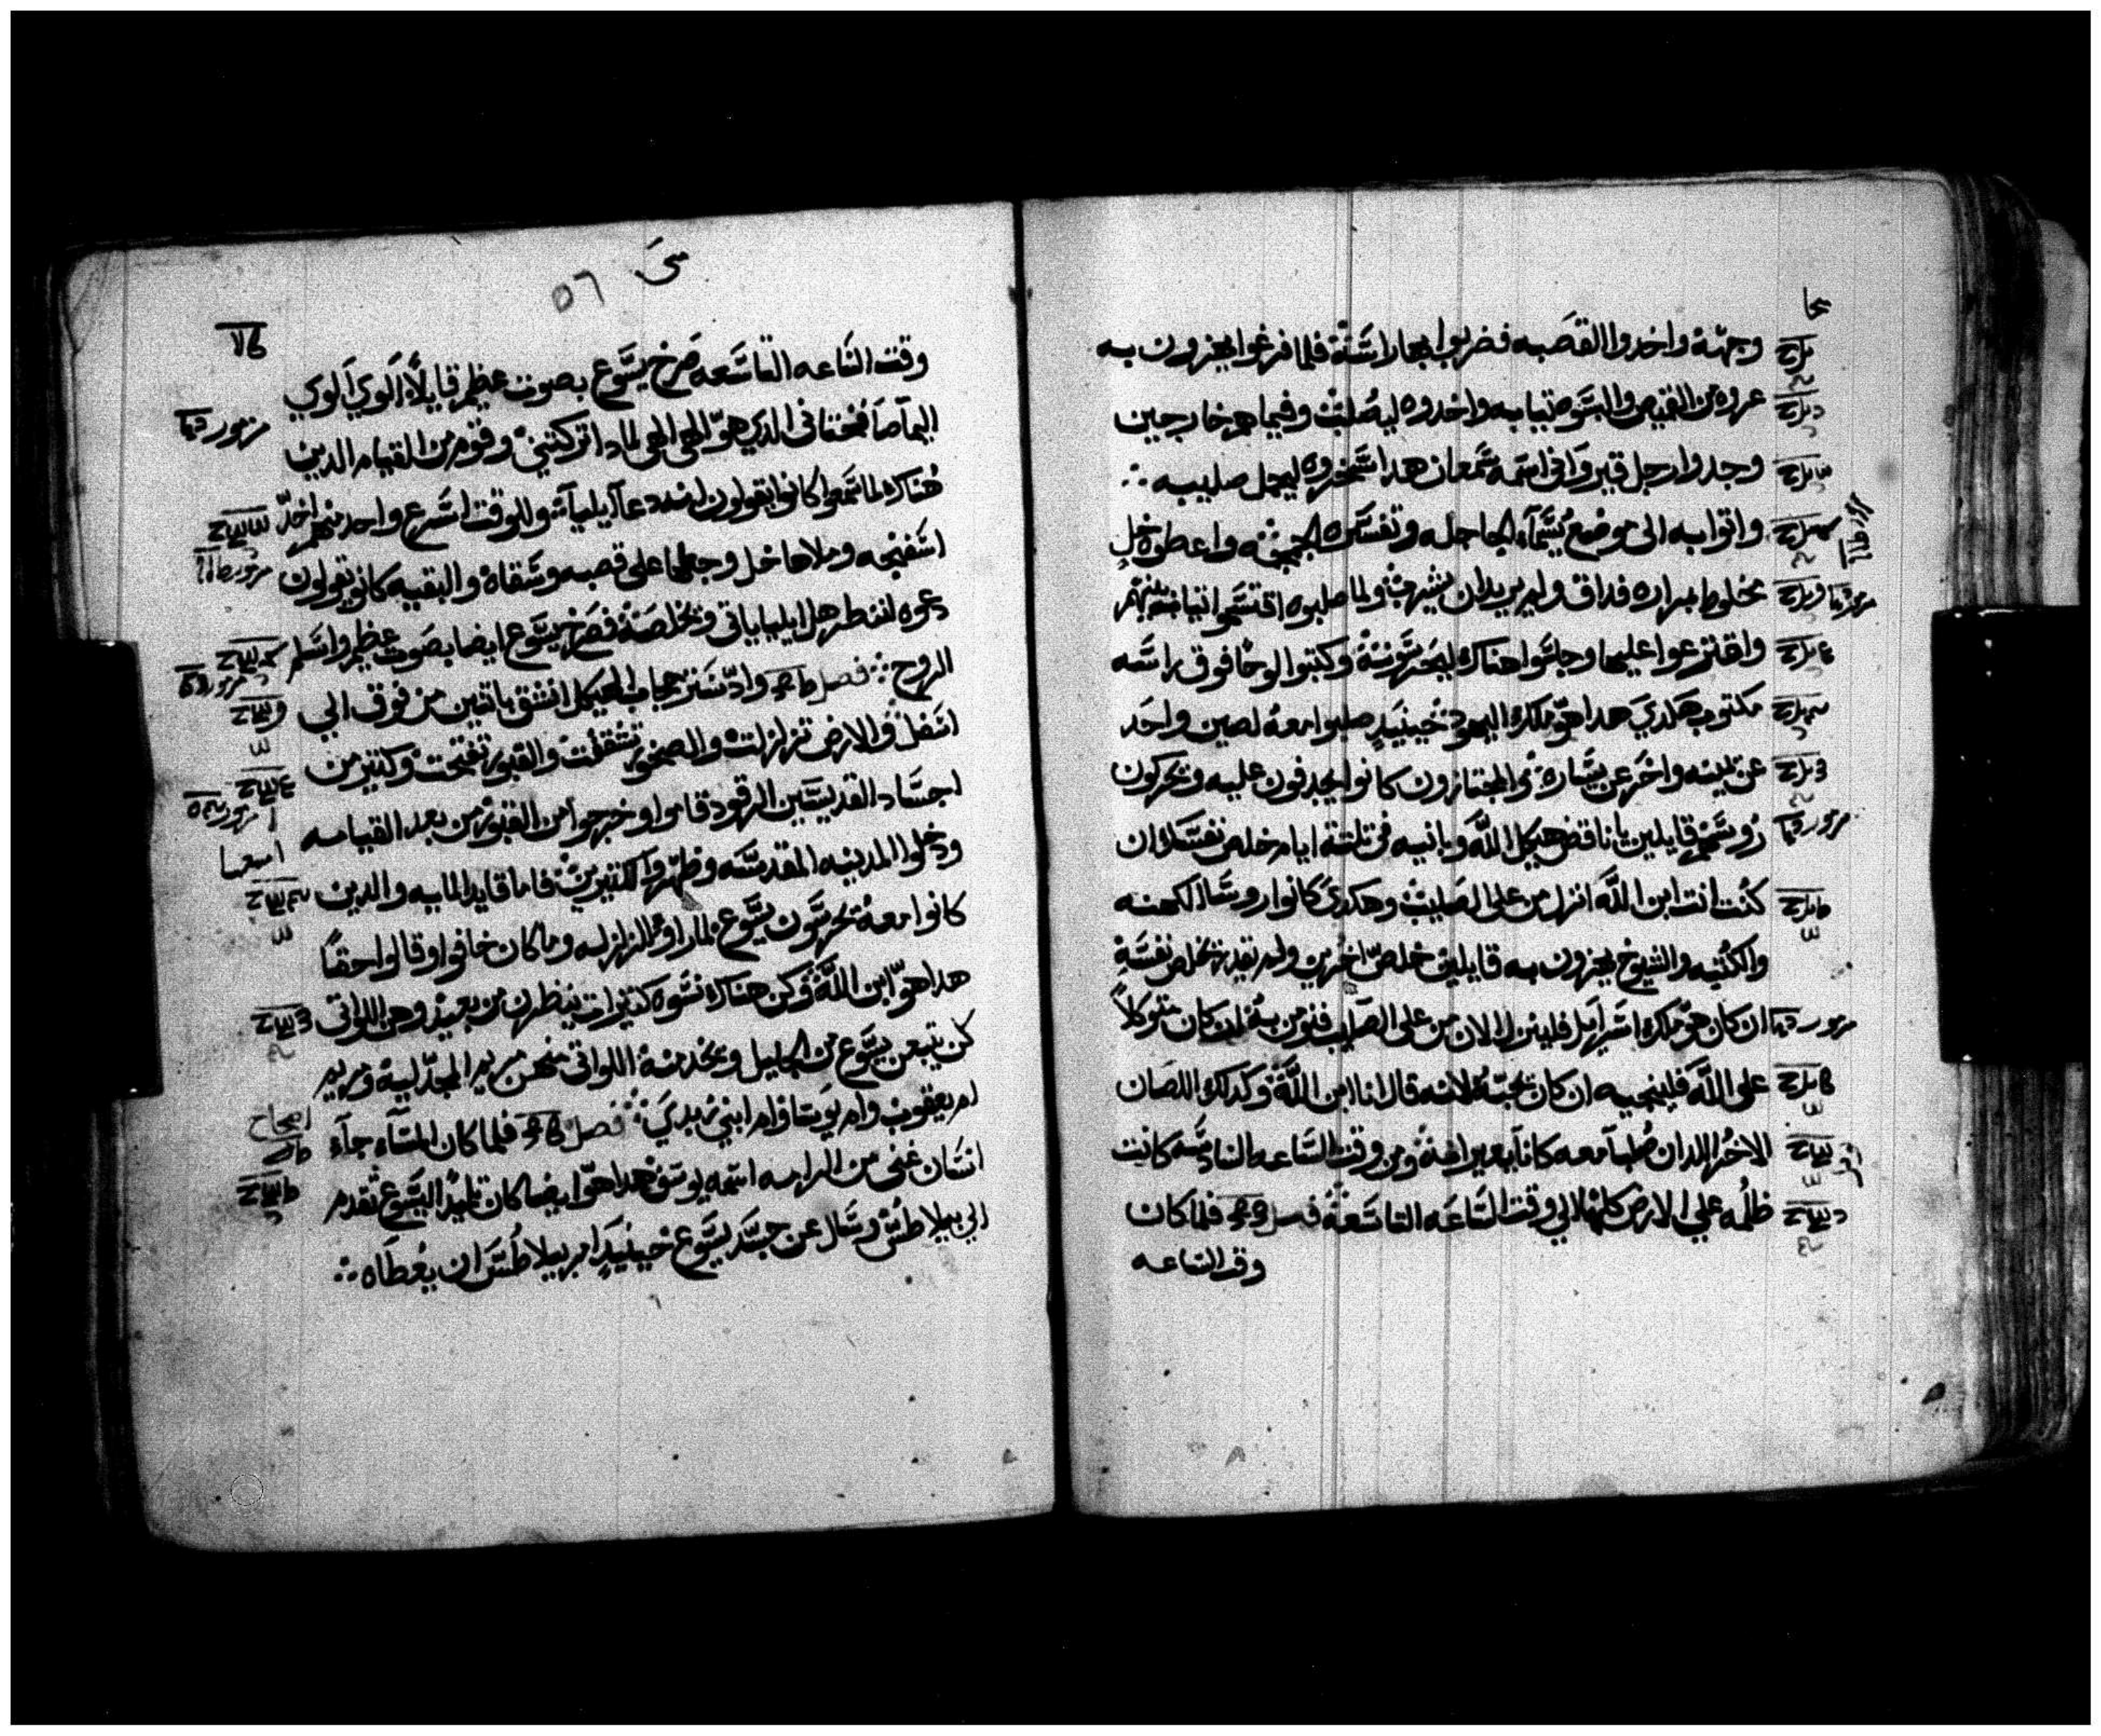 وجهه واخدوا القصبه فضربوا بها راسه فلما فرغوا يهزون به
عروه من القميص والبسوه ثيابه واخدوه ليصلب وفيما هم خارجين
وجدوا رجل قيرواني اسمه سمعان هدا سخروه ليحمل صليبه
واتوا به الى موضع يسما الجاجله وتفسيره الجمجمه واعطوه خل
مخلوط بمراره فداق ولم يريد ان يشرب ولما صلبوه اقتسموا ثيابه بينهم
واقترعوا عليها وجلسوا هناك ليحرسونه وكتبوا لوحا فوق راسه
مكتوب هكدي هدا هو ملك اليهود حينيد صلبوا معه لصين واحد
عن يمينه واخر عن يساره والمجتازون كانوا يجدفون عليه ويحركون
روسهم قايلين يا ناقض هيكل الله وبانيه في تلتة ايام خلص نفسك ان
كنت انت ابن الله انزل من على الصليب وهكدي كانوا روسا الكهنه
والكتبه والشيوخ يهزون به قايلين خلص اخرين ولم تقدر تخلص نفسه
ان كان هو ملك اسرايل فلينزل الان من على الصليب فنومن به ان كان متوكلا
على الله فلينجيه ان كان يحبه لانه قال انا ابن الله وكدلك اللصان
الاخر اللدان صلبا معه كانا يعيرانه ومن وقت الساعه السادسه كانت
ظلمه علي الارض كلها الي وقت الساعه التاسعه فصل فلما كان
وقت الساعه
متى
٥٦
وقت الساعه التاسعه صرخ يسوع بصوت عظيم قايلا الوي الوي
اليما صافختاني الدي هو الهي الهي لمادا تركتني وقوم من القيام الدين
هناك لما سمعوا كانوا يقولون ان هدا دعا ايليا وللوقت اسرع واحد منهم اخد
اسفنجه وملاها خل وجعلها على قصبه وسقاه والبقيه كانو يقولون
دعوه لننظر هل ايليا ياتي ويخلصه فصرخ يسوع ايضا بصوت عظيم واسلم
الروح فصل وادا ستر حجاب الهيكل انشق باتنين من فوق الي
اسفل والارض تزلزلت والصخور تشققت والقبور تفتحت وكتير من
اجساد القديسين الرقود قاموا وخرجوا من القبور من بعد القيامه
ودخلوا المدينه المقدسه وظهروا لكتيرين فاما قايد المايه والدين
كانوا معه يحرسون يسوع لما راوا الزلزله وما كان خافوا وقالوا حقا
هدا هو ابن الله وكن هناك نسوه كتيرات ينظرن من بعيد وهن اللواتي
كن تبعن يسوع من الجليل ويخدمنه اللواتي منهن مريم المجدليه ومريم
ام يعقوب وام يوسا وام ابني زبدي فصل فلما كان المسآء جآء
انسان غني من الرامه اسمه يوسف هدا هو ايضا كان تلميد اليسوع تقدم
الي بيلاطس وسال عن جسد يسوع حينيد امر بيلاطس ان يعطاه